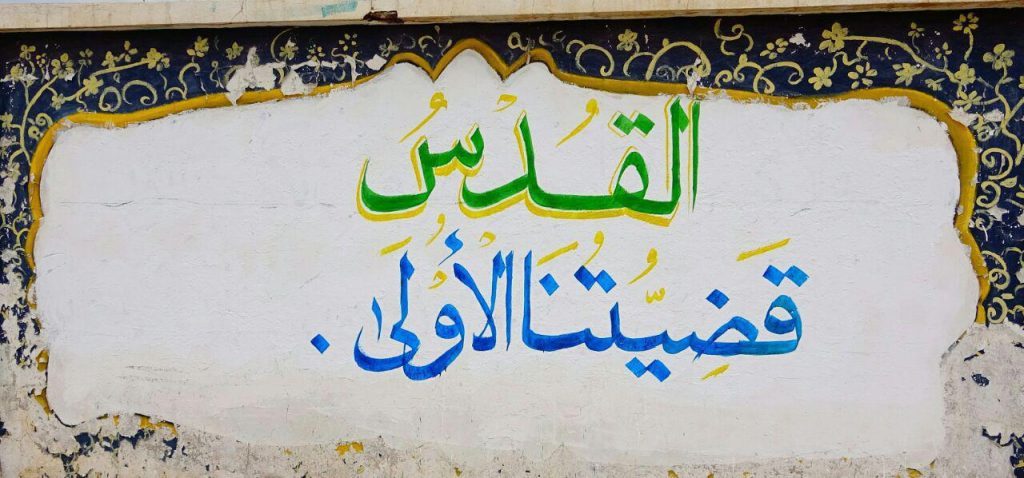 القُدْسُ
قَضِيّتُنَا الأُوْلَى.